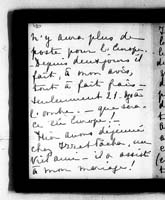 n'y aura plus de
poste pour l'Europe.
Depuis deux jours il
fait, à mon avis,
tout à fait frais –
seulement 21. dans
l'ombre! – que sera-
ce en Europe! –
Hier avons déjeuné
chez
– il a assisté
à mon mariage!